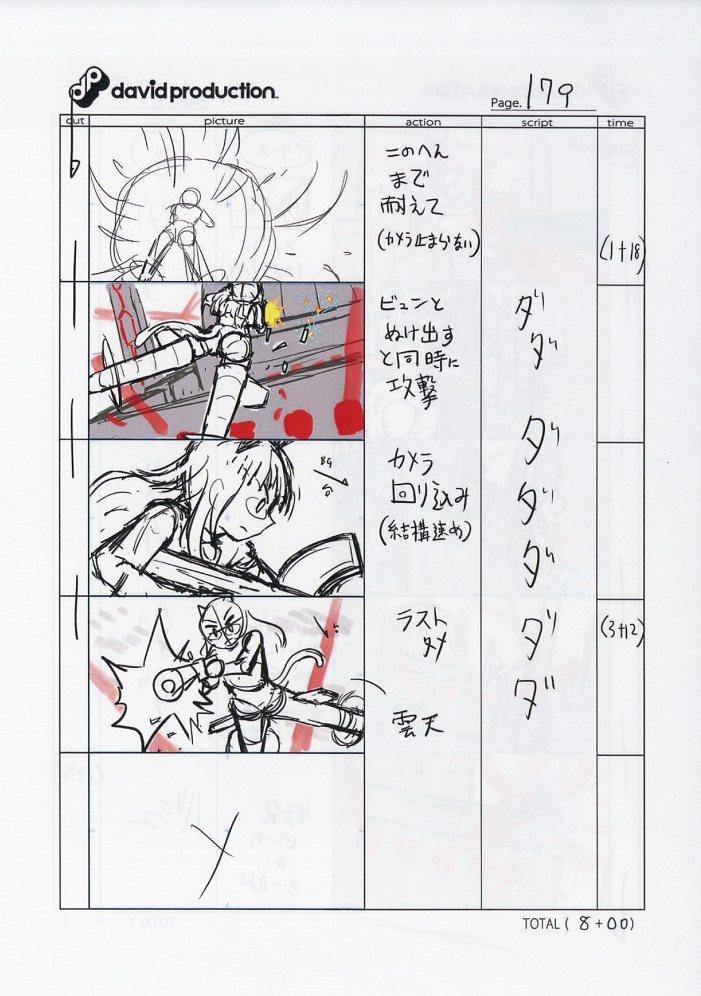 david production.
Page. 179
cut picture action script time
このへん
まで
耐えて
(カメラ止まらない)
(1+18)
ビュンと
ぬけ出す
と同時に
攻撃
ダ
ダ
カメラ
回り込み
(結構速め)
BG
ダ
ダ
ダ
ラスト
タメ
雲天
ダ
ダ
(3+12)
TOTAL ( 8 + 00 )